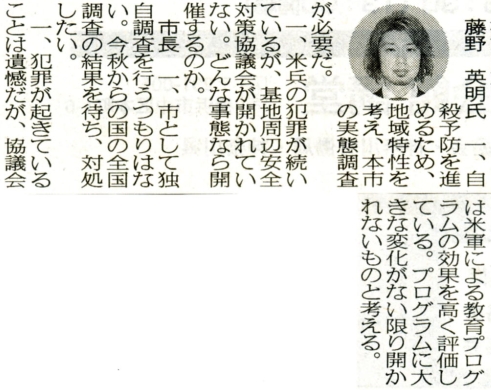 藤野 英明氏 一、自
殺予防を進
めるため、
地域特性を
考え、本市
の実態調査
が必要だ。
一、米兵の犯罪が続い
ているが、基地周辺安全
対策協議会が開かれてい
ない。どんな事態なら開
催するのか。
市長 一、市として独
自調査を行うつもりはな
い。今秋からの国の全国
調査の結果を待ち、対処
したい。
一、犯罪が起きている
ことは遺憾だが、協議会
は米軍による教育プログ
ラムの効果を高く評価し
ている。プログラムに大
きな変化がない限り開か
れないものと考える。